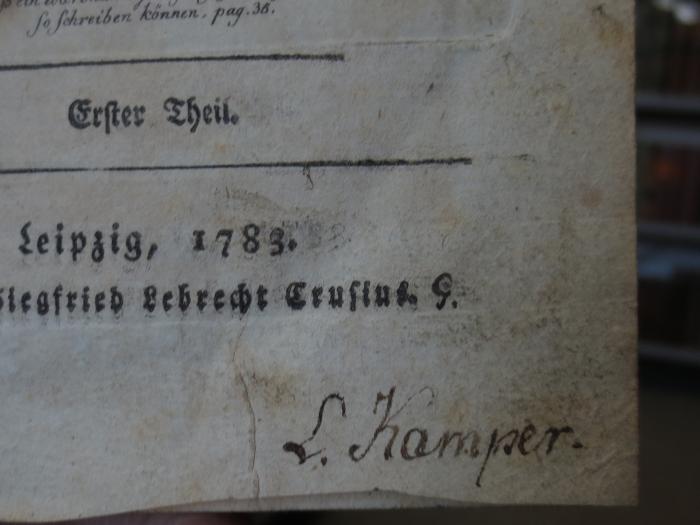 so schreiben können. pag. 36.
Erster Theil.
Leipzig, 1783.
Siegfried Lebrecht Crusius. G.
L. Kamper.